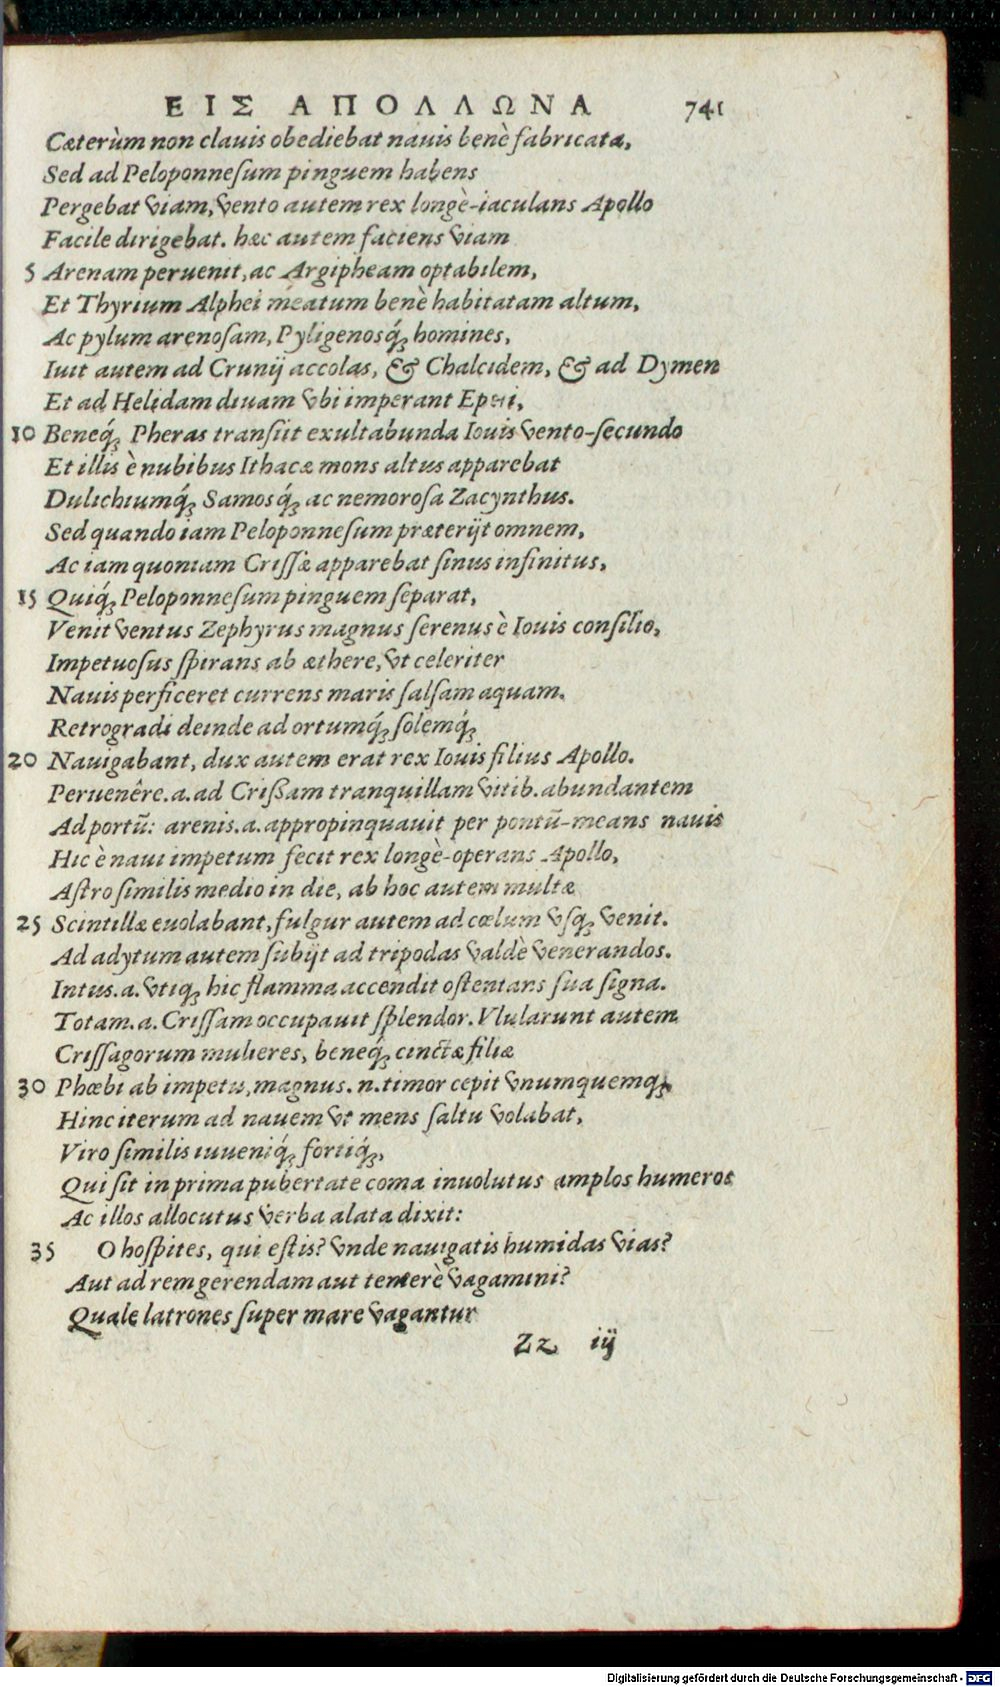 ΕΙΣ ΑΠΟΛΛΩΝΑ 741
Cæterùm non clauis obediebat nauis benè fabricata,
Sed ad Peloponneſum pinguem habens
Pergebat viam, vento autem rex longè-iaculans Apollo
Facile dirigebat. hæc autem faciens viam
5 Arenam peruenit, ac Argipheam optabilem,
Et Thyrium Alphei meatum benè habitatam altum,
Ac pylum arenoſam, Pyligenosq́; homines,
Iuit autem ad Crunij accolas, & Chalcidem, & ad Dymen
Et ad Helidam diuam vbi imperant Epei,
10 Beneq́; Pheras tranſiit exultabunda Iouis vento-ſecundo
Et illis è nubibus Ithacæ mons altus apparebat
Dulichiumq́; Samosq́; ac nemoroſa Zacynthus.
Sed quando iam Peloponneſum præterijt omnem,
Ac iam quoniam Criſſæ apparebat ſinus infinitus,
15 Quiq́; Peloponneſum pinguem ſeparat,
Venit ventus Zephyrus magnus ſerenus è Iouis conſilio,
Impetuoſus ſpirans ab æthere, vt celeriter
Nauis perficeret currens maris ſalſam aquam.
Retrogradi deinde ad ortumq́; ſolemq́;
20 Nauigabant, dux autem erat rex Iouis filius Apollo.
Peruenêre.a.ad Criſſam tranquillam vitib.abundantem
Ad portū: arenis.a.appropinquauit per pontū-means nauis
Hic è naui impetum fecit rex longè-operans Apollo,
Aſtro ſimilis medio in die, ab hoc autem multæ
25 Scintillæ euolabant, fulgur autem ad cœlum vſq; venit.
Ad adytum autem ſubijt ad tripodas valdè venerandos.
Intus.a.vtiq; hic flamma accendit oſtentans ſua ſigna.
Totam.a.Criſſam occupauit ſplendor. Vlularunt autem
Criſſagorum mulieres, beneq́; cinctæ filiæ
30 Phœbi ab impetu, magnus.n.timor cepit vnumquemq;
Hinc iterum ad nauem vt mens ſaltu volabat,
Viro ſimilis iuueniq́; fortiq́;,
Qui ſit in prima pubertate coma inuolutus amplos humeros
Ac illos allocutus verba alata dixit:
35 O hoſpites, qui eſtis? vnde nauigatis humidas vias?
Aut ad rem gerendam aut temerè vagamini?
Quale latrones ſuper mare vagantur
Zz iij
Digitalisierung gefördert durch die Deutsche Forschungsgemeinschaft - DFG